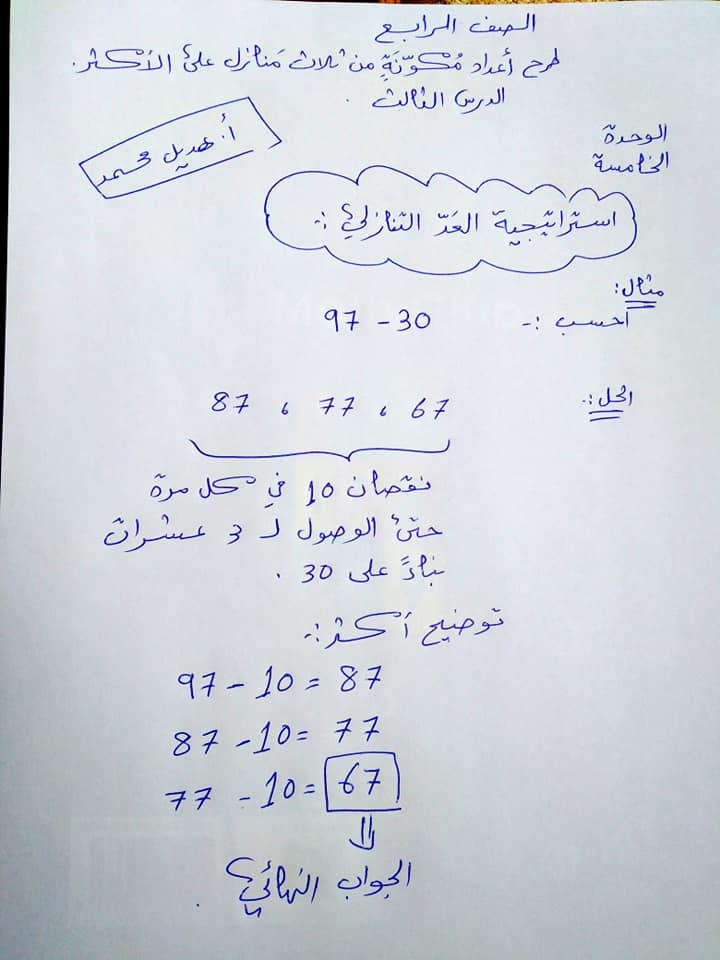 الصف الرابع
طرح أعداد مُكوّنَةٍ من ثلاث مَنازل على الأكثر.
الدرس الثالث.
أ. هديل محمد
الوحدة
الخامسة
استراتيجية العَدّ التنازلي :-
مثال:
احسب :- 97 - 30
الحل:- 87 ، 77 ، 67
نقصان 10 في كل مرة
حتى الوصول لـ 3 عشرات
بناءً على 30 .
توضيح أكثر:-
97 - 10 = 87
87 - 10 = 77
77 - 10 = 67
الجواب النهائي.